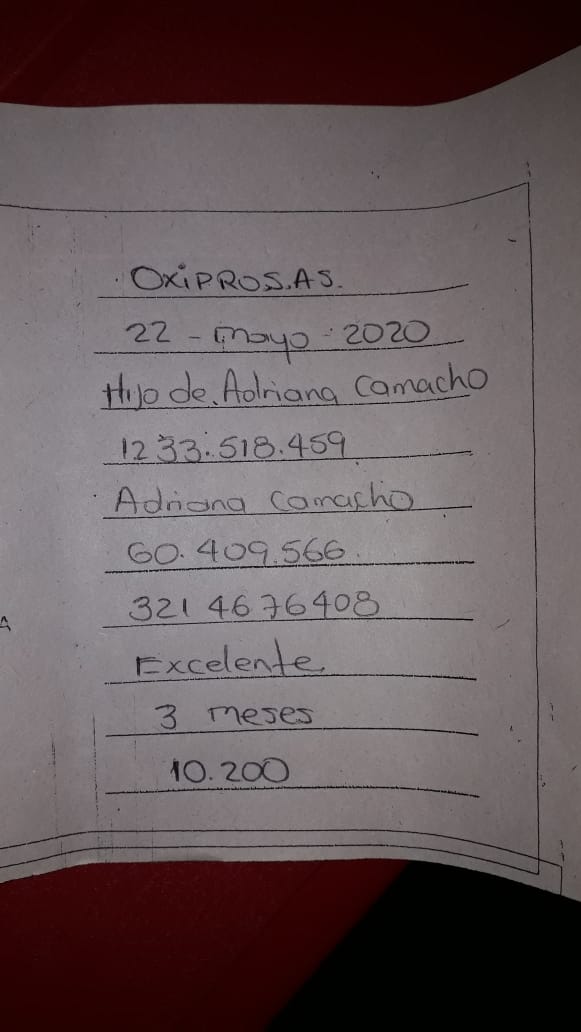 OXIPROS.AS.
22 - mayo - 2020
Hijo de Adriana Camacho
1233.518.459
Adriana Camacho
60.409.566
321 4676408
A
Excelente
3 meses
10.200